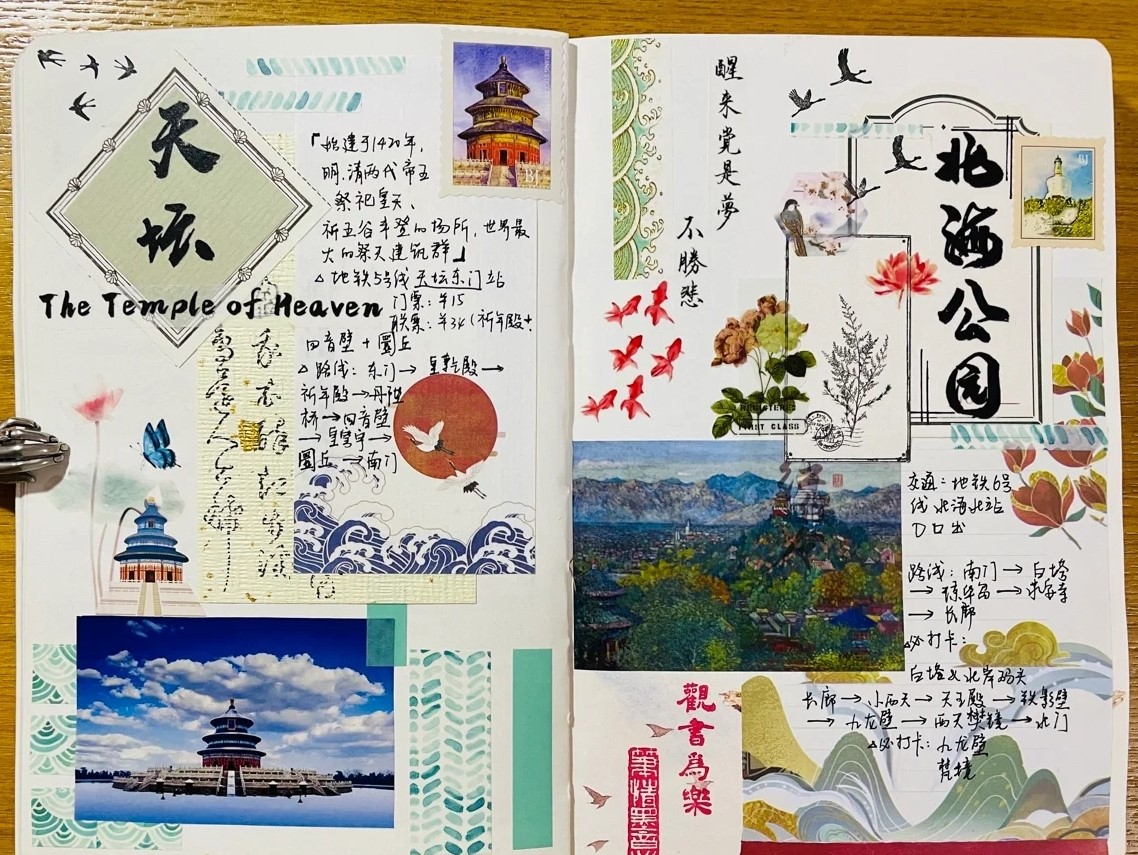 天坛
The Temple of Heaven
BJ
「始建于1420年，
明、清两代帝王
祭祀皇天、
祈五谷丰登的场所，世界最
大的祭天建筑群」
△地铁5号线天坛东门站
门票：¥15
联票：¥34（祈年殿+
回音壁+圜丘
△路线：东门→皇乾殿→
祈年殿→丹陛
桥→回音壁
→皇穹宇→
圜丘→南门
醒来觉是夢
不勝悲
北海公园
BJ
REGISTERED
FIRST CLASS
交通：地铁6号
线北海北站
D口出
路线：南门→白塔
→琼华岛→永安寺
→长廊
△必打卡：
白塔&北岸码头
长廊→小西天→天王殿→铁影壁
→九龙壁→西天梵境→北门
△必打卡：九龙壁
梵境
觀書為樂